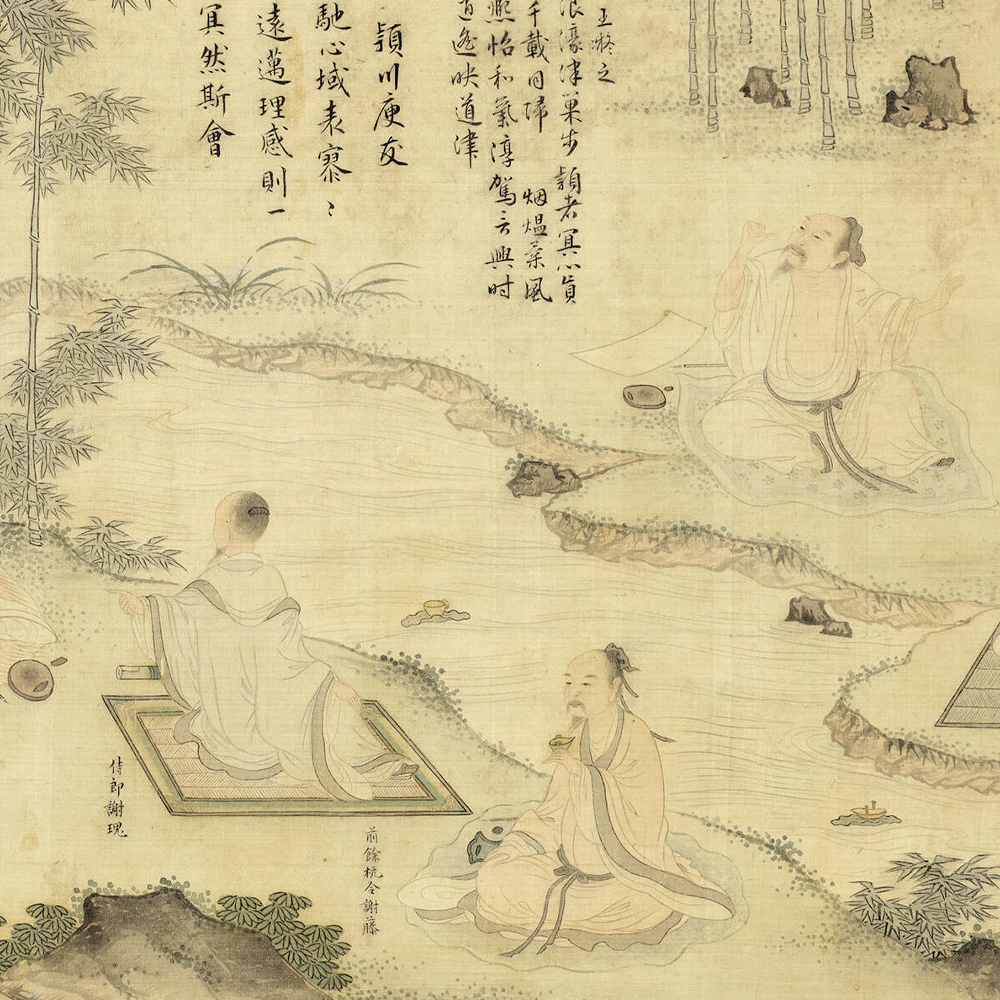 王凝之
浪濠津巢步潁冥心真
千載同歸烟熅柔風
熙怡和氣淳駕言興时
遙映道津
潁川庾友
馳心域表寥〻
遠邁理感則一
冥然斯會
前餘杭令謝藤
侍郎謝瑰